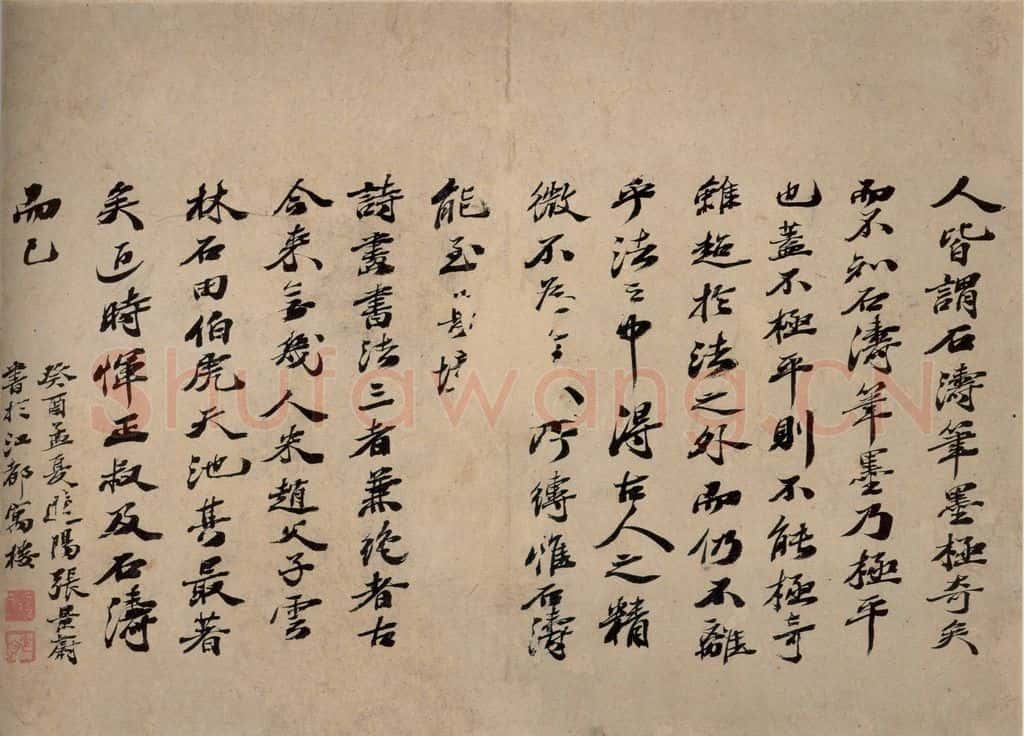 人皆謂石濤筆墨極奇矣
而不知石濤筆墨乃極平
也蓋不極平則不能極奇
雖超於法之外而仍不離
乎法之中得古人之精
微不為人所縛惟石濤
能至
詩畫書法三者兼絕者古
今來無幾人宋趙父子雲
林石田伯虎天池其最著
矣近時惲正叔及石濤
而已
癸酉孟夏陽張景蔚
書於江都寓樓
Shufawang.CN